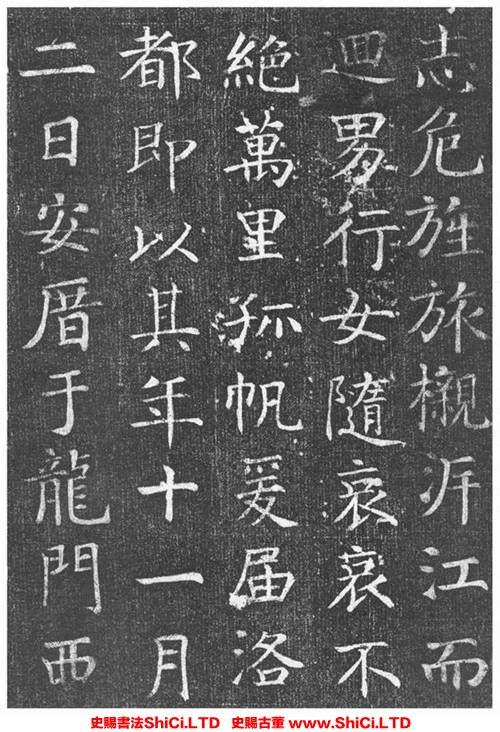 志危旌旅櫬泝江而
迴男行女隨哀哀不
絕萬里孤帆爰届洛
都即以其年十一月
二日安厝于龍門西
史賜書法ShiCi.LTD 史賜古董 www.ShiCi.LTD